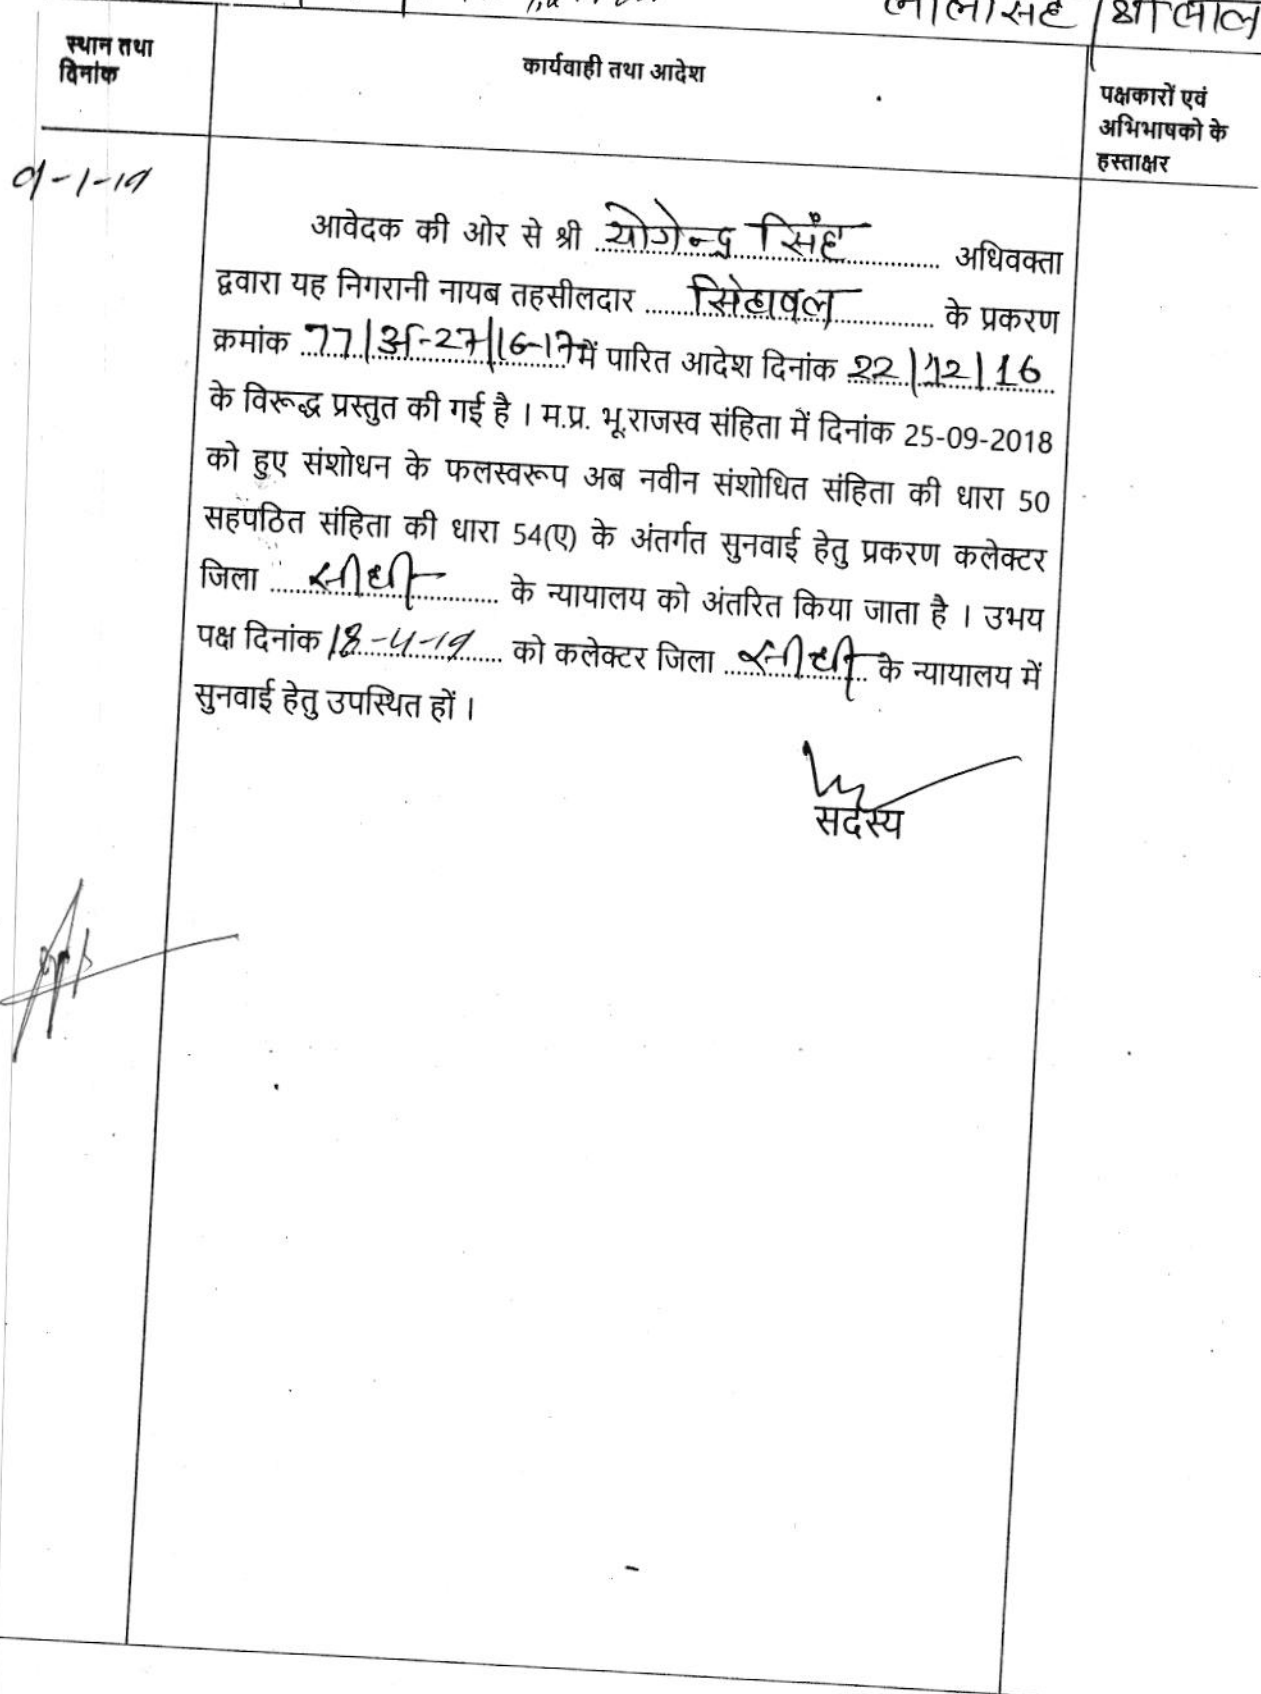 लालसिंह / श्रीलाल
स्थान तथा
दिनांक
कार्यवाही तथा आदेश
पक्षकारों एवं
अभिभाषको के
हस्ताक्षर
9-1-19
आवेदक की ओर से श्री योगेन्द्र सिंह अधिवक्ता
द्वारा यह निगरानी नायब तहसीलदार सिहावल के प्रकरण
क्रमांक 77/अ-27/16-17 में पारित आदेश दिनांक 22/12/16
के विरूद्ध प्रस्तुत की गई है । म.प्र. भू.राजस्व संहिता में दिनांक 25-09-2018
को हुए संशोधन के फलस्वरूप अब नवीन संशोधित संहिता की धारा 50
सहपठित संहिता की धारा 54(ए) के अंतर्गत सुनवाई हेतु प्रकरण कलेक्टर
जिला सीधी के न्यायालय को अंतरित किया जाता है । उभय
पक्ष दिनांक 18-4-19 को कलेक्टर जिला सीधी के न्यायालय में
सुनवाई हेतु उपस्थित हों ।
सदस्य